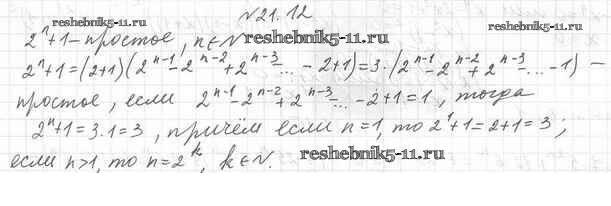 №21.12
reshebnik5-11.ru
reshebnik5-11.ru
2ⁿ+1 – простое, n∈N
2ⁿ+1=(2+1)(2ⁿ⁻¹-2ⁿ⁻²+2ⁿ⁻³-...-2+1)=3·(2ⁿ⁻¹-2ⁿ⁻²+2ⁿ⁻³-...-1) –
простое, если 2ⁿ⁻¹-2ⁿ⁻²+2ⁿ⁻³-...-2+1=1, тогда
2ⁿ+1=3·1=3, причём если n=1, то 2¹+1=2+1=3;
если n>1, то n=2ᵏ, k∈N.
reshebnik5-11.ru